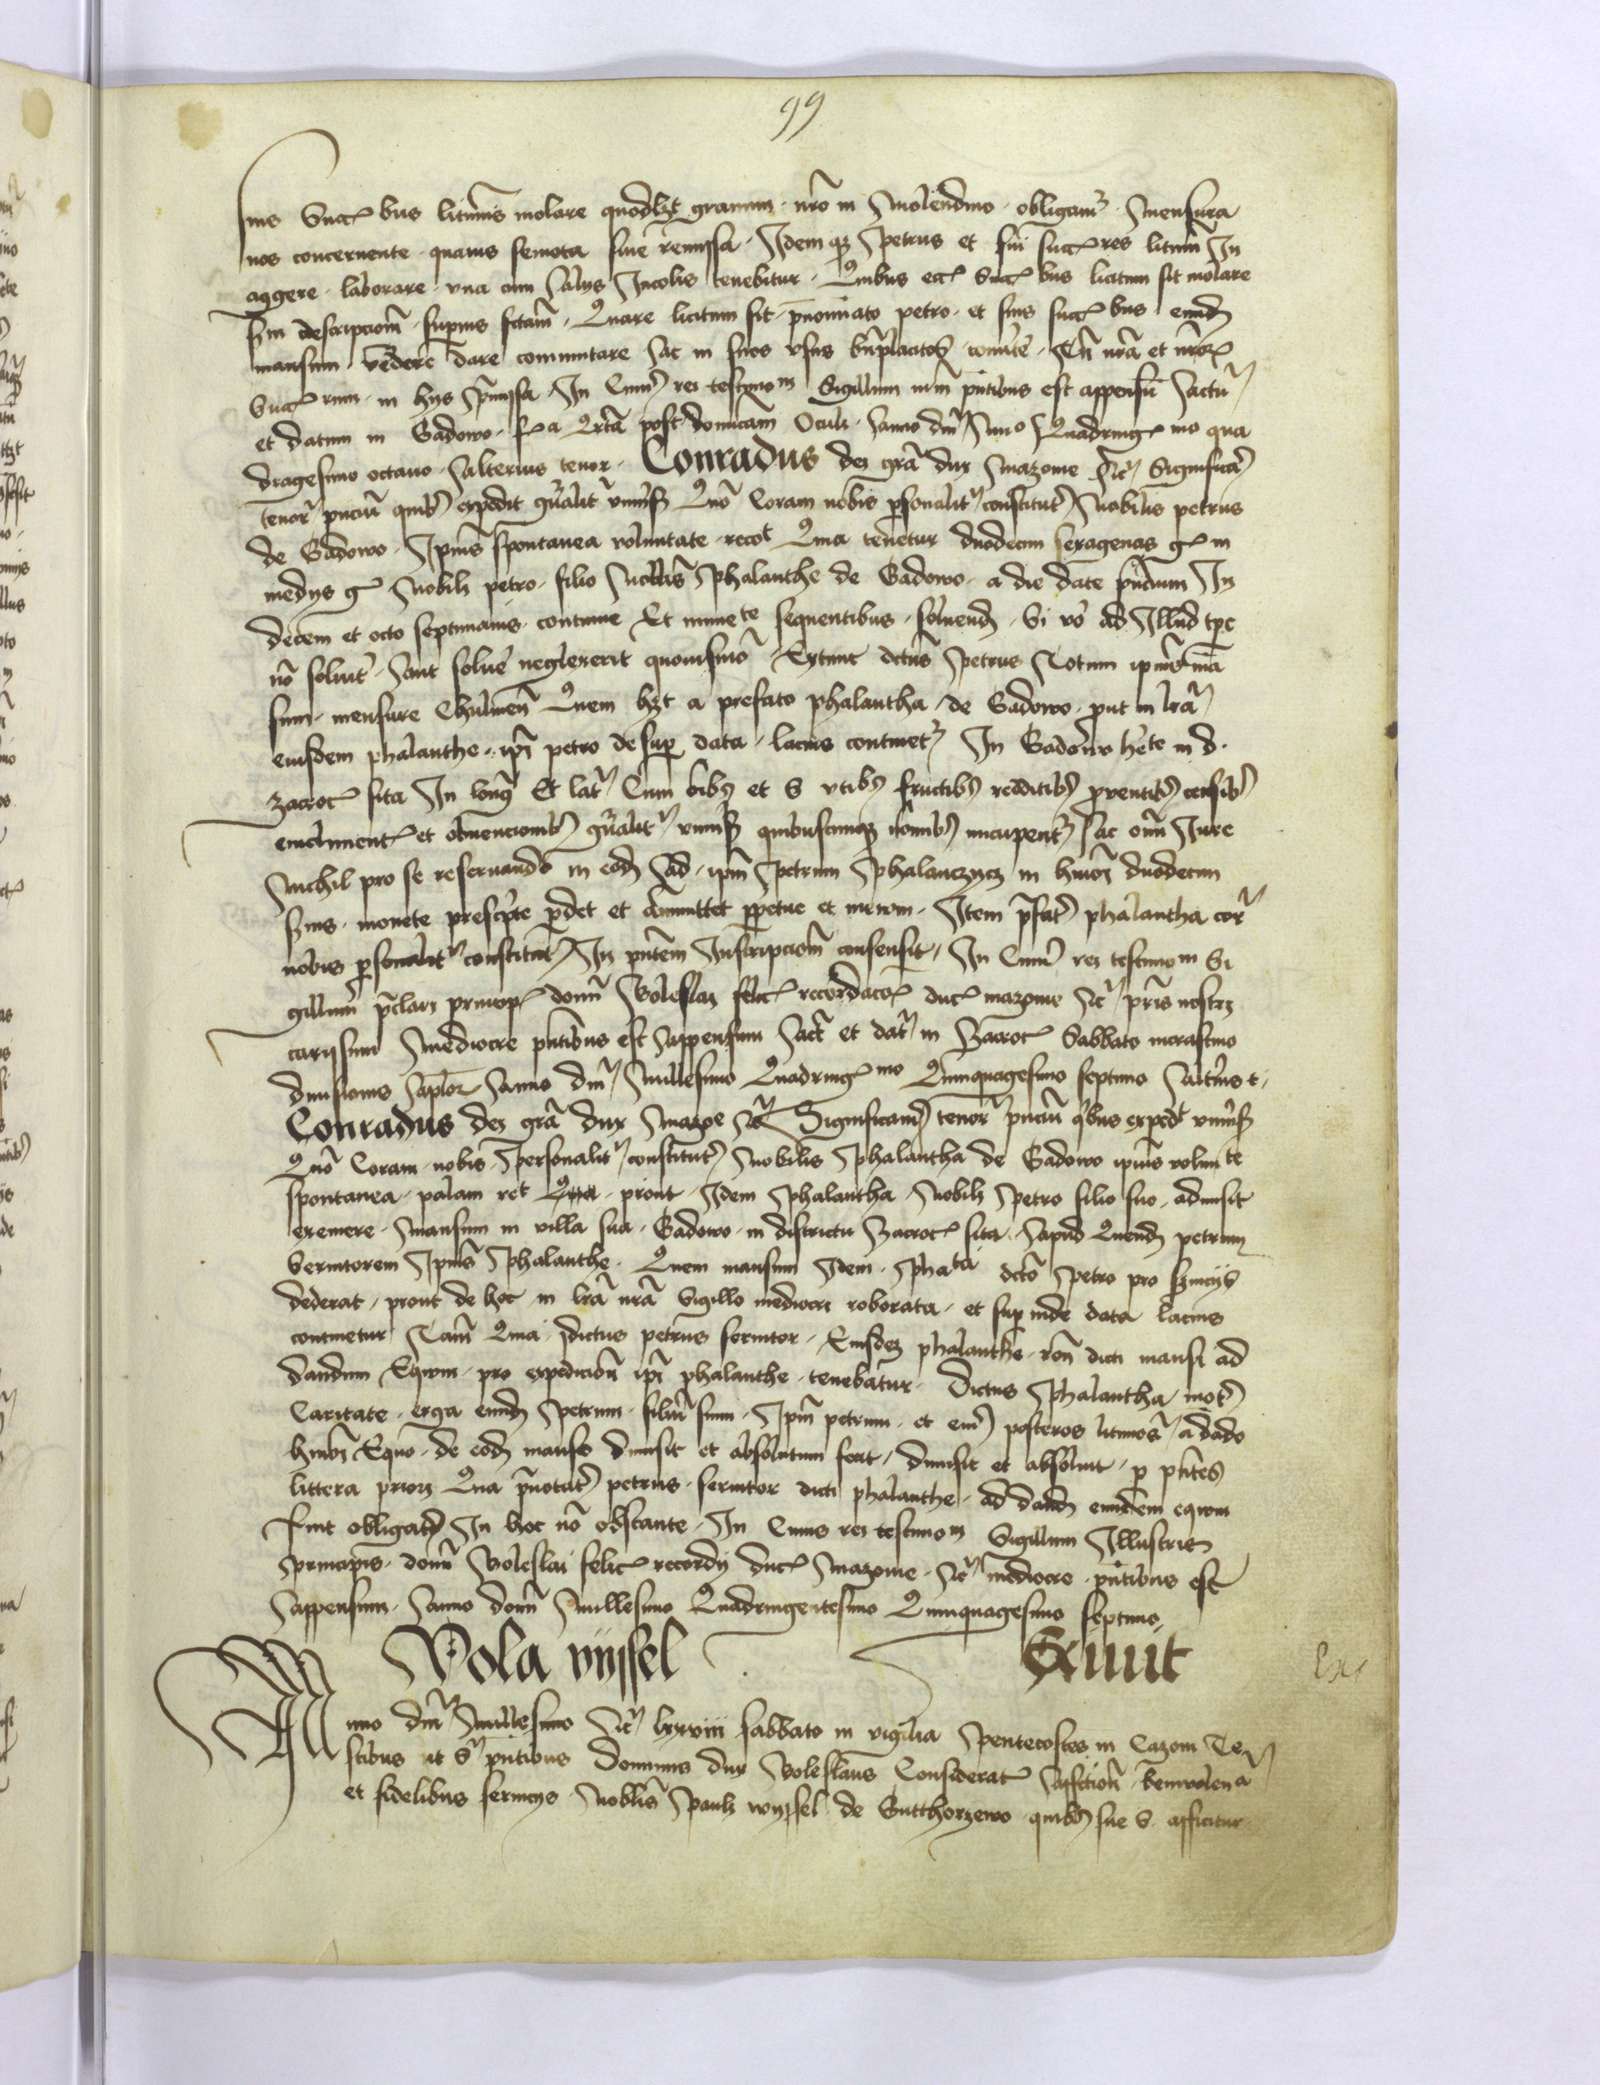 99
suis Succ bus litimis molare quodlzt granum nro in Molendino obligam Mensura
nos concernente quavis semota sive remissa Idem qz Petrus et sui succ res litimi In
aggere laborare una cum Alys Incolis tenebitur Quibus ec Succ bus licitum sit molare
scdm descripciom superius fctam Quare licitum sit pnominato petro et suis succ bus eundz
mansum vendere dare commutare Ac in suos usus bnplacitos convte Tn nra et nror
Succ rum in hys Pmissa In Cuius rei testimo m Sigillum nrm pntibus est appensu Actu
et datum in Gadowo f a Qrta post domicam Oculi Anno dni Mmo Quadring mo qua
dragesimo octavo Alterius tenor Conradus dei gra dux Mazovie etc Significam
tenore pnciu quibus expedit gnalit univsis Quo Coram nobis psonalit constitut Nobilis petrus
de Gadowo Ipius spontanea voluntate recot Quia tenetur duodecim sexagenas g in
medys g Nobili petro filio Nobilis Phalanthe de Gadowo a die date pncium In
decem et octo septimanis continue Et inmete sequentibus solvendz Si vo ad Illud tpc
no solvit Aut solve neglexerit quovismo Extunc dctus Petrus Totum ipius ma
sum mensure Chulmen Quem hzt a prefato phalantha de Gadowo put in lra
eiusdem phalanthe ipi petro desup data lacius continet In Gadowo hete in d
zacroc sita In long Et lat Cum oibus et s utibus fructibus redditibus proventibus censibus
emolument et obvencionibus gnalit univsis quibuscunqz noibus nuncupent Ac omi Iure
Nichil pro se reservando in eodz Ad ipm Petrum Phalanczycz in huoi duodecim
sxnis monete prescpte pdet et Amittet ppetue et in evum Item pfat phalantha cor
nobis psonalit constitut In pntem Inscripciom consensit In Cuius rei testimo m Si
gillum pclari princip domi Boleslai felic recordacoe duc mazovie etc pris nostri
carissimi Mediocre pntibus est Appensum Act et dat in Zacroc Sabbato in crastino
divisionis Aplor Anno dni Millesimo Quadring mo Quinquagesimo septimo Altius t
Conradus dei gra dux Mazoe etc Significam tenore pnciu qbus expedt univsis
Quo Coram nobis Personalit constitut Nobilis Phalantha de Gadowo ipius volun te
spontanea palam ret Quia prout Idem Phalantha Nobili Petro filio suo admisit
exemere Mansum in villa sua Gadowo in districtu Zacroc sita Apud Quendz petrum
Servitorem Ipius Phalanthe Quem mansum Idem Phata dcto Petro pro servicijs
dederat prout de hoc in lra nra Sigillo mediocri roborata et sup inde data lacius
continetur Tam Quia pdictus petrus servitor Eiusdez phalanthe ron dicti mansi ad
dandum Equm pro expedicion ipi phalanthe tenebatur Dictus Phalantha mot
Caritate erga eundz Petrum filiu suum Ipm petrum et eius posteros litimos a dado
huoi Equo de eodz manso dimisit et absolutum fecit dimisit et absolvit p pntes
littera priori Qua pnotat petrus servitor dicti phalanthe ad dandz eundem equm
fuit obligat In hoc no obstante In Cuius rei testimo m Sigillum Illustris
Principis domi Boleslai felic recordy duc Mazovie etc mediocre pntibus est
Appensum Anno domi Millesimo Quadringentesimo Quinquagesimo septimo
Wola vijssel Exiuit
Anno dni Millesimo etc lxxviii sabbato in vigilia Pentecostes in Cazom Te
stibus ut S pntibus Dominus dux Boleslaus Considerat Affction benivolen a
et fidelibus servicys Nobilis Pauli wyssel de Gutthorzewo quibus sue S afficitur